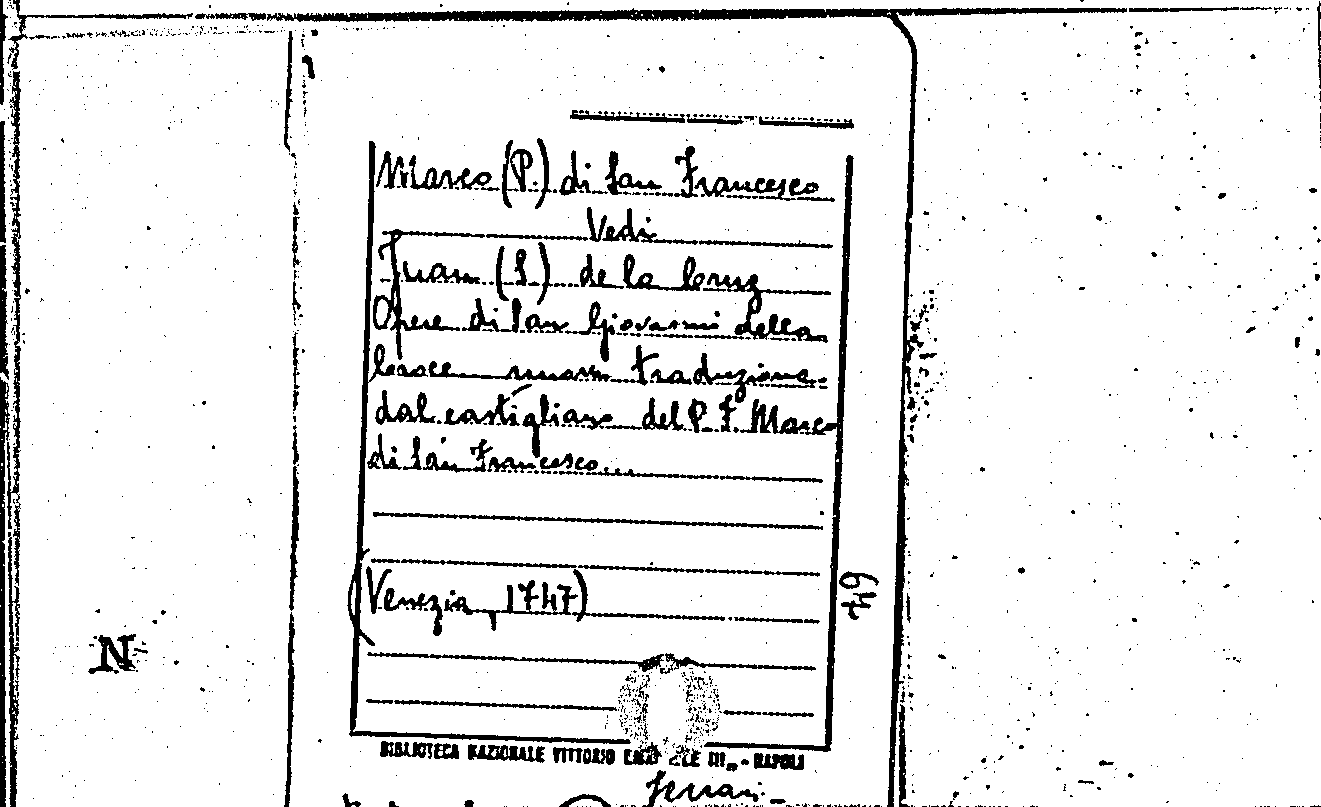 Marco (P.) di San Francesco
Vedi
Juan (S.) de la Cruz
Opere di San Giovanni della
Croce nuova traduzione
dal castigliano del P. F. Marco
di San Francesco...
(Venezia, 1747)
64
N
BIBLIOTECA NAZIONALE VITTORIO III - NAPOLI